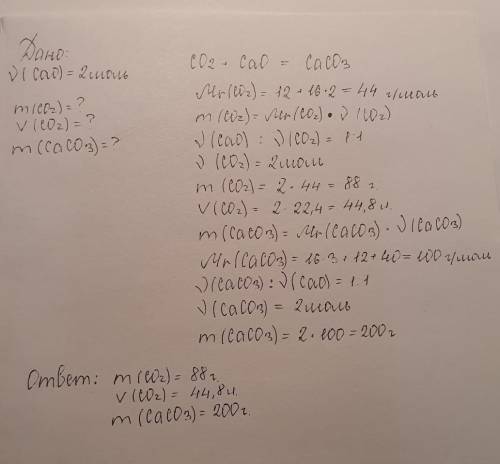 Дано:
ν(CaO) = 2 моль
m(CO2) = ?
V(CO2) = ?
m(CaCO3) = ?
CO2 + CaO = CaCO3
Mr(CO2) = 12 + 16·2 = 44 г/моль
m(CO2) = Mr(CO2) · ν(CO2)
ν(CaO) : ν(CO2) = 1:1
ν(CO2) = 2 моль
m(CO2) = 2 · 44 = 88 г.
V(CO2) = 2 · 22,4 = 44,8 л.
m(CaCO3) = Mr(CaCO3) · ν(CaCO3)
Mr(CaCO3) = 16·3 + 12 + 40 = 100 г/моль
ν(CaCO3) : ν(CaO) = 1:1
ν(CaCO3) = 2 моль
m(CaCO3) = 2 · 100 = 200 г
Ответ: m(CO2) = 88 г.
V(CO2) = 44,8 л.
m(CaCO3) = 200 г.